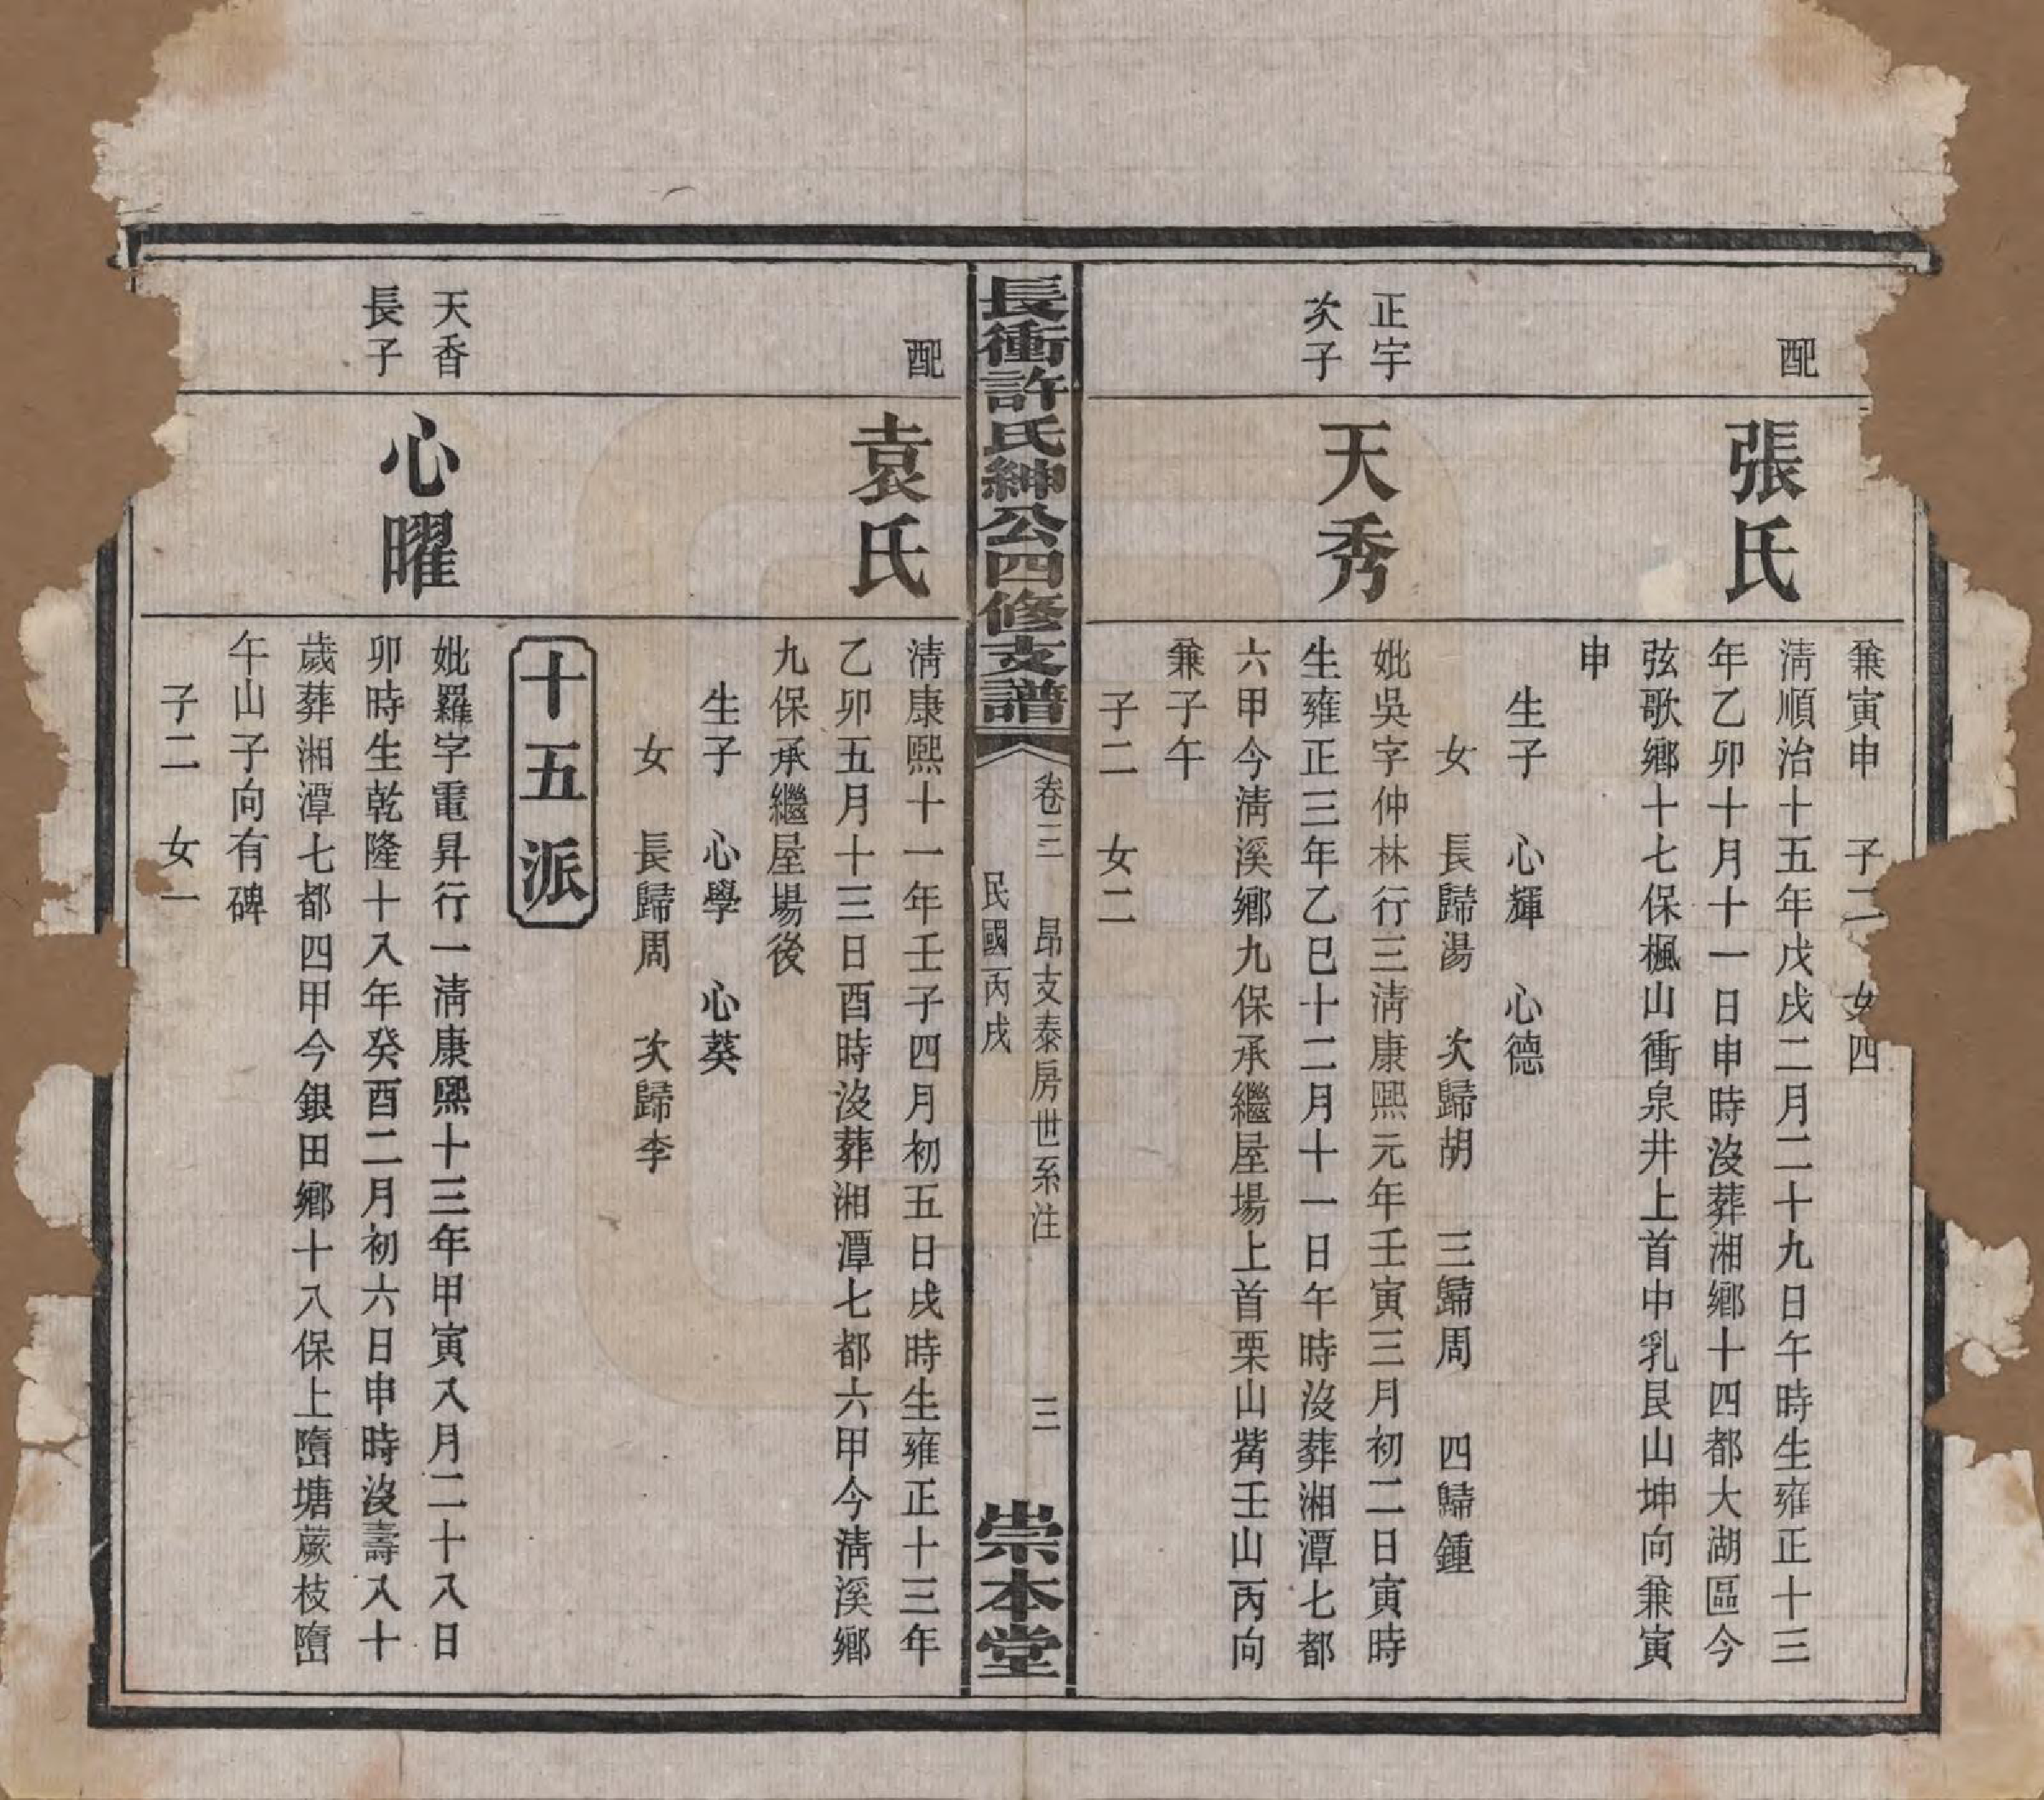 兼寅申　子二　女四
配
張氏
淸順治十五年戊戌二月二十九日午時生雍正十三
年乙卯十月十一日申時沒葬湘鄕十四都大湖區今
弦歌鄕十七保楓山衝泉井上首中乳艮山坤向兼寅
申
生子　心輝　心德
女　長歸湯　次歸胡　三歸周　四歸鍾
正宇
次子
天秀
妣吳字仲林行三淸康熙元年壬寅三月初二日寅時
生雍正三年乙巳十二月十一日午時沒葬湘潭七都
六甲今淸溪鄕九保承繼屋場上首栗山觜壬山丙向
兼子午
子二　女二
長衝許氏紳公四修支譜
卷三　昂支泰房世系注　三
民國丙戌
崇本堂
配
袁氏
淸康熙十一年壬子四月初五日戌時生雍正十三年
乙卯五月十三日酉時沒葬湘潭七都六甲今淸溪鄕
九保承繼屋場後
生子　心學　心葵
女　長歸周　次歸李
十五派
天香
長子
心曜
妣羅字電昇行一淸康熙十三年甲寅八月二十八日
卯時生乾隆十八年癸酉二月初六日申時沒壽八十
歲葬湘潭七都四甲今銀田鄕十八保上塘蕨枝
午山子向有碑
子二　女一